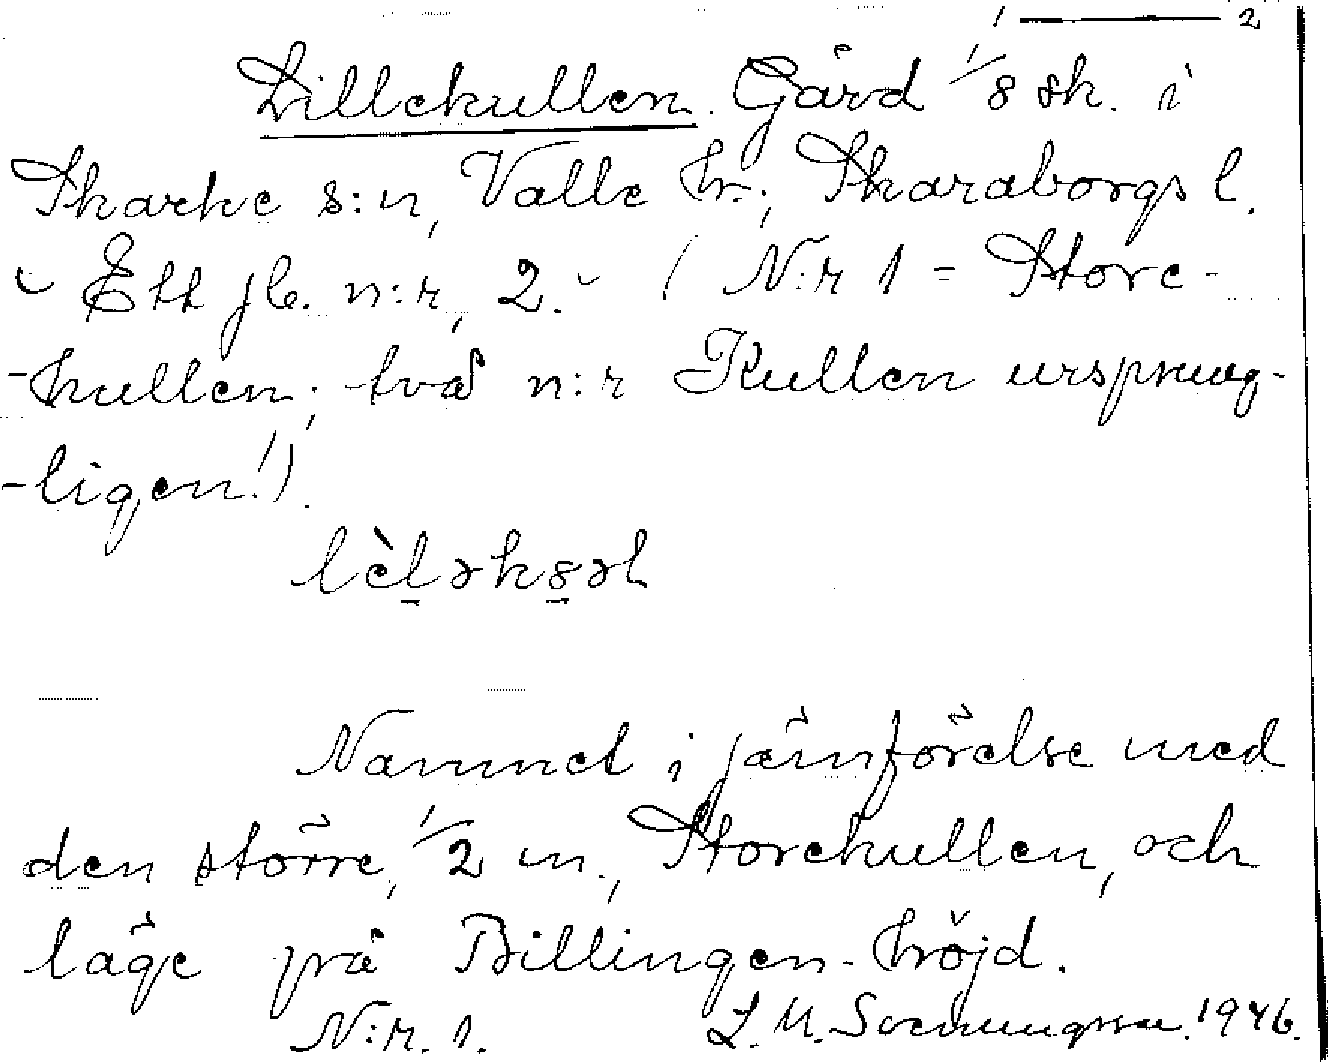 1 — 2
Lillekullen. Gård 1/8 sk. i
Skarke s:n, Valle hr; Skaraborgs l.
Ett jb. n:r, 2. (N:r 1 = Store-
-kullen; två n:r Kullen ursprung-
-ligen!).
lèləkɞəl
Namnet i jämförelse med
den större, 1/2 m., Storekullen, och
läge på Billingen-höjd.
N:r. 1. L. M. Svenungsson. 1946.